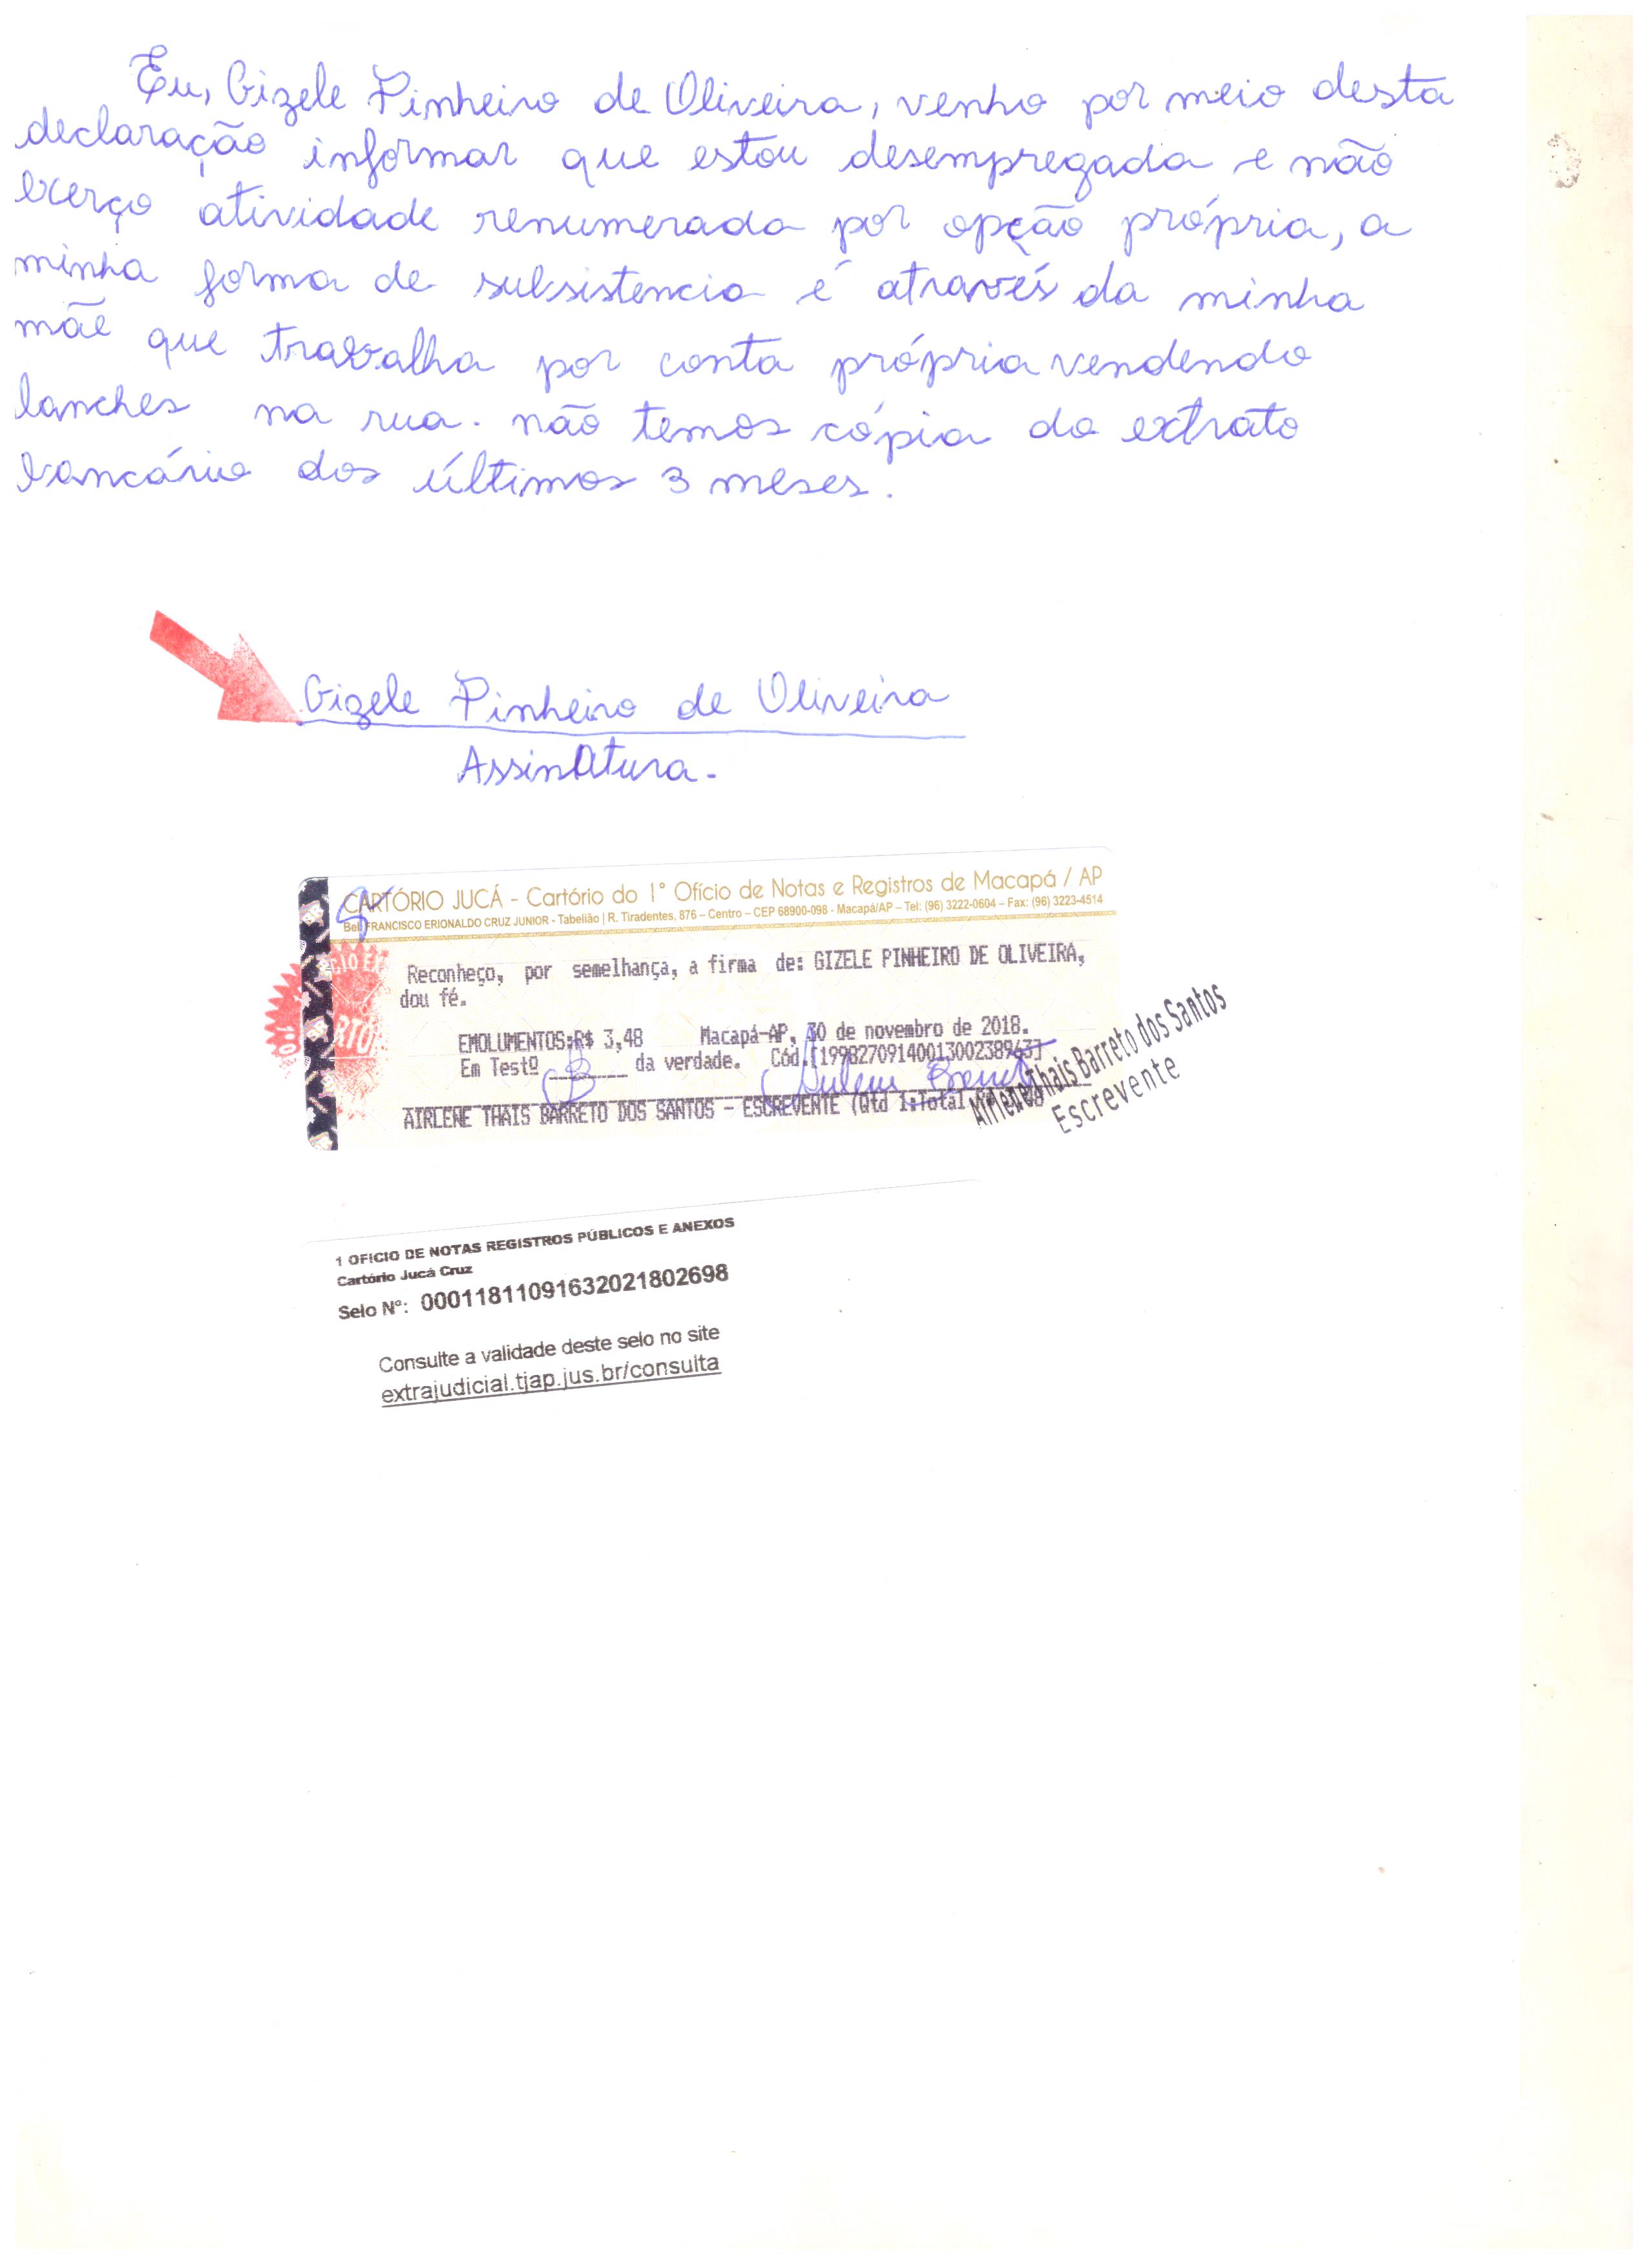 Eu, Gizele Pinheiro de Oliveira, venho por meio desta
declaração informar que estou desempregada e não
exerço atividade renumerada por opção própria, a
minha forma de subsistencia é através da minha
mãe que trabalha por conta própria vendendo
lanches na rua. não temos cópia do extrato
bancário dos últimos 3 meses.
Gizele Pinheiro de Oliveira
Assinatura.
CARTÓRIO JUCÁ - Cartório do 1° Ofício de Notas e Registros de Macapá / AP
Bel. FRANCISCO ERIONALDO CRUZ JUNIOR - Tabelião | R. Tiradentes, 876 – Centro – CEP 68900-098 - Macapá/AP – Tel: (96) 3222-0604 – Fax: (96) 3223-4514
Reconheço, por semelhança, a firma de: GIZELE PINHEIRO DE OLIVEIRA,
dou fé.
EMOLUMENTOS:R$ 3,48 Macapá-AP, 30 de novembro de 2018.
Em Testº ______ da verdade. Cód.[199827091400130023896
AIRLENE THAIS BARRETO DOS SANTOS - ESCREVENTE (Qtd 1:Total
Airlene Thais Barreto dos Santos
Escrevente
1 OFICIO DE NOTAS REGISTROS PÚBLICOS E ANEXOS
Cartório Jucá Cruz
Selo Nº: 00011811091632021802698
Consulte a validade deste selo no site
extrajudicial.tjap.jus.br/consulta